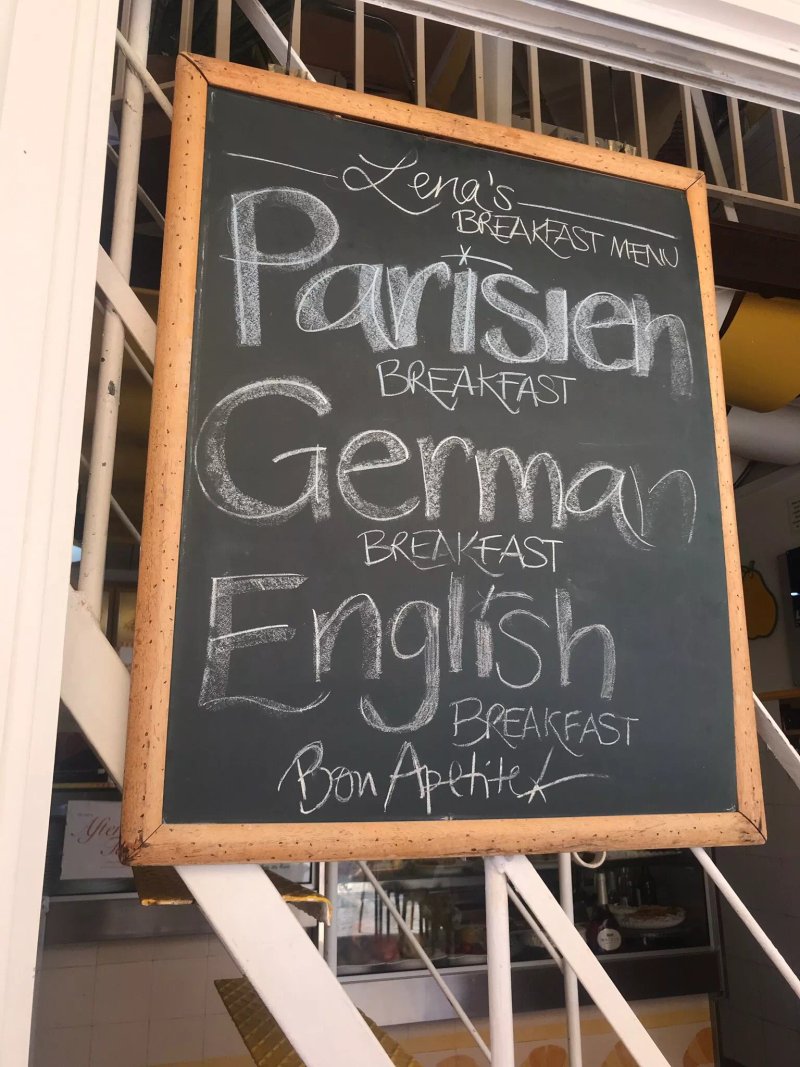 Lena's
BREAKFAST MENU
Parisien
BREAKFAST
German
BREAKFAST
English
BREAKFAST
Bon Apetite